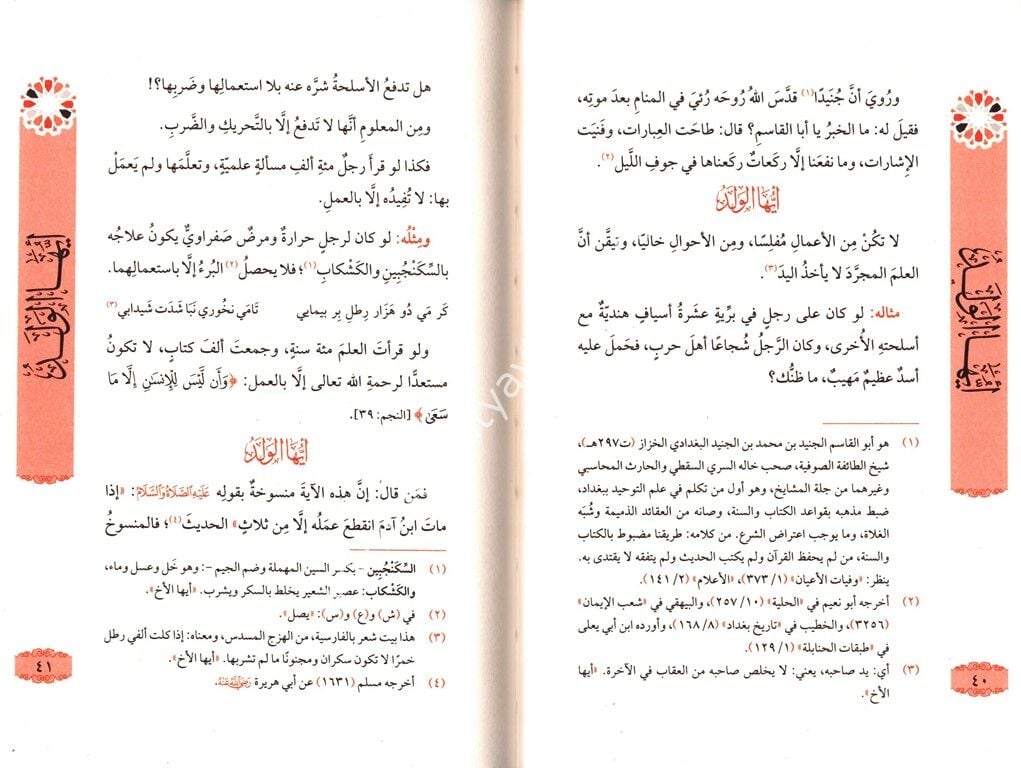 ورُويَ أنَّ جُنَيدًا(١) قدَّسَ اللهُ رُوحَه رُئيَ في المنامِ بعدَ موتِه،
فقيلَ له: ما الخبرُ يا أبا القاسمِ؟ قال: طاحَت العِبارات، وفَنيَت
الإشارات، وما نفعَنا إلَّا ركَعاتٌ ركَعناها في جوفِ اللَّيل(٢).
أيُّها الوَلَدُ
لا تكُنْ مِن الأعمالِ مُفلِسًا، ومِن الأحوالِ خاليًا، وتيقَّن أنَّ
العلمَ المجرَّدَ لا يأخذُ اليدَ(٣).
مثاله: لو كان على رجلٍ في برِّيةٍ عشَرةُ أسيافٍ هنديَّةٌ مع
أسلحتهِ الأُخرى، وكان الرَّجلُ شُجاعًا أهلَ حربٍ، فحَملَ عليه
أسدٌ عظيمٌ مَهيبٌ، ما ظنُّك؟
(١) هو أبو القاسم الجنيد بن محمد بن الجنيد البغدادي الخزاز (ت٢٩٧هـ)،
شيخ الطائفة الصوفية، صحب خاله السري السقطي والحارث المحاسبي
وغيرهما من جلة المشايخ، وهو أول من تكلم في علم التوحيد ببغداد،
ضبط مذهبه بقواعد الكتاب والسنة، وصانه من العقائد الذميمة وشُبَه
الغلاة، وما يوجب اعتراض الشرع. من كلامه: طريقنا مضبوط بالكتاب
والسنة، من لم يحفظ القرآن ولم يكتب الحديث ولم يتفقه لا يقتدى به.
ينظر: «وفيات الأعيان» (١/ ٣٧٣)، «الأعلام» (٢/ ١٤١).
(٢) أخرجه أبو نعيم في «الحلية» (١٠/ ٢٥٧)، والبيهقي في «شعب الإيمان»
(٣٢٥٦)، والخطيب في «تاريخ بغداد» (٨/ ١٦٨)، وأورده ابن أبي يعلى
في «طبقات الحنابلة» (١/ ١٢٩).
(٣) أي: يد صاحبه، يعني: لا يخلص صاحبه من العقاب في الآخرة. «أيها
الأخ».
أيها الولد
٤٠
هل تدفعُ الأسلحةُ شرَّه عنه بلا استعمالِها وضَربِها؟!
ومِن المعلومِ أنَّها لا تَدفعُ إلَّا بالتَّحريكِ والضَّربِ.
فكذا لو قرأَ رجلٌ مئةَ ألفِ مسألةٍ علميَّةٍ، وتعلَّمَها ولم يَعمَلْ
بها: لا تُفِيدُه إلَّا بالعملِ.
ومِثْلُه: لو كان لرجلٍ حرارةٌ ومرضٌ صَفراويٌّ يكونُ علاجُه
بالسِّكَنجُبينِ والكَشْكابِ(١)؛ فلا يحصلُ(٢) البُرءُ إلَّا باستعمالِهما.
كَر مَي دُو هَزَار رِطلِ بِر بيمايي تَامَي نخُوري نبَا شَدَت شيدابي(٣)
ولو قرأتَ العلمَ مئة سنةٍ، وجمعتَ ألفَ كتابٍ، لا تكونُ
مستعدًّا لرحمةِ الله تعالى إلَّا بالعمل: ﴿وَأَن لَّيْسَ لِلْإِنسَٰنِ إِلَّا مَا
سَعَىٰ﴾ [النجم: ٣٩].
أيُّها الوَلَدُ
فمَن قال: إنَّ هذه الآيةَ منسوخةٌ بقولهِ عَلَيْهِ الصَّلَاةُ وَالسَّلَامُ: «إذا
ماتَ ابنُ آدمَ انقطعَ عملُه إلَّا مِن ثلاثٍ» الحديثَ(٤)؛ فالمنسوخُ
(١) السِّكَنجُبِين - بكسر السين المهملة وضم الجيم -: وهو خَل وعسل وماء،
والكَشْكاب: عصير الشعير يخلط بالسكر ويشرب. «أيها الأخ».
(٢) في (ش) و(ع) و(س): «يصل».
(٣) هذا بيت شعر بالفارسية، من الهزج المسدس، ومعناه: إذا كلت ألفي رطل
خمرًا لا تكون سكران ومجنونًا ما لم تشربها. «أيها الأخ».
(٤) أخرجه مسلم (١٦٣١) عن أبي هريرة رَضِيَ اللهُ عَنْهُ.
أيها الولد
٤١